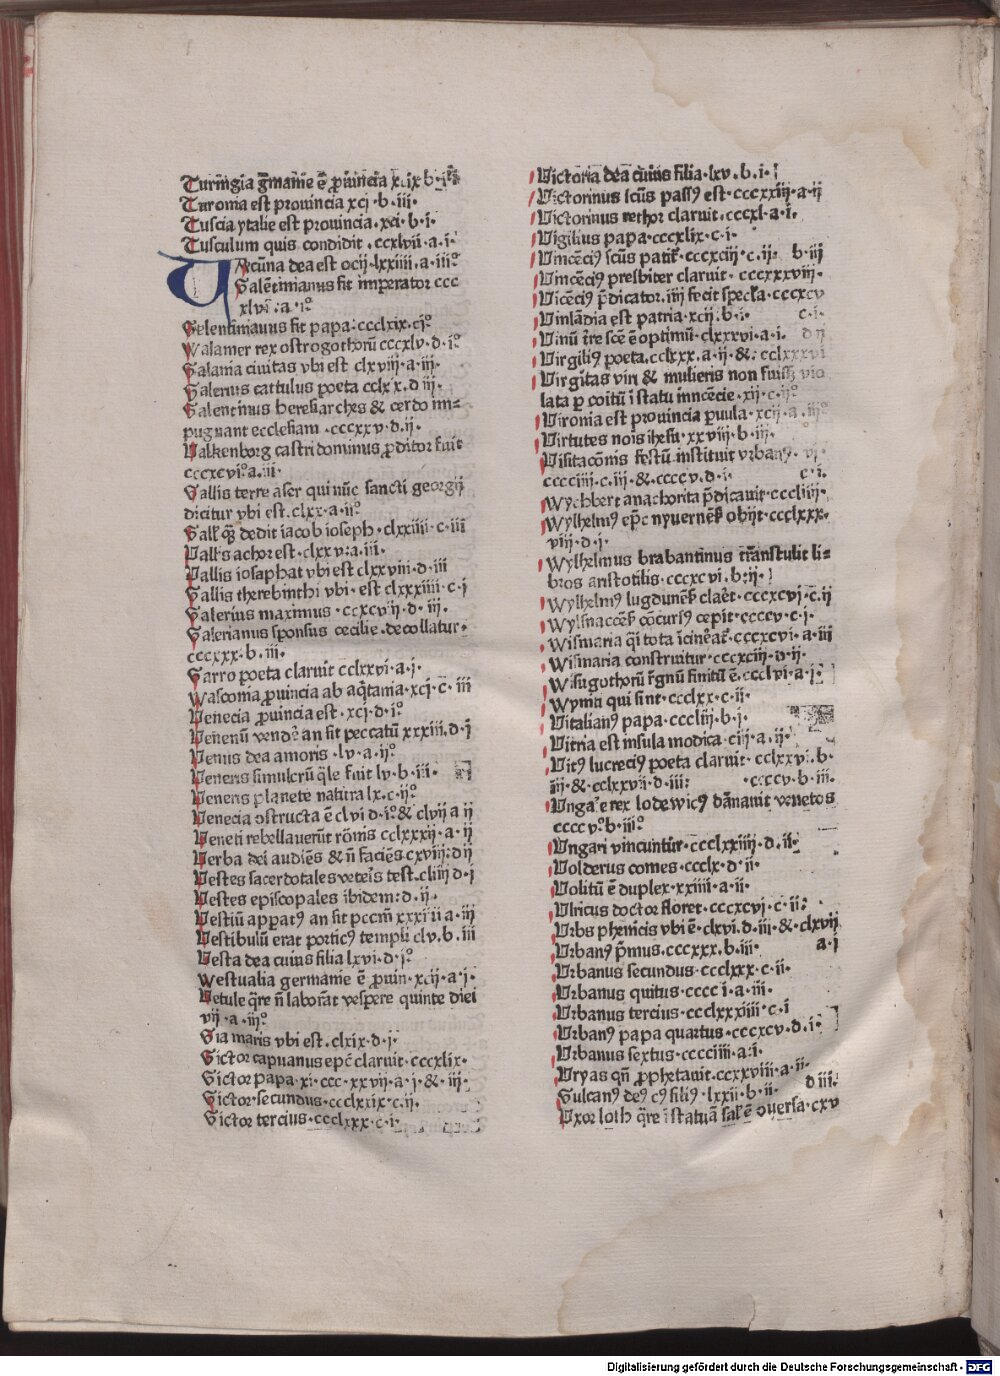 Turingia g̃manie ē ꝓuincia xcix b·iiij
Turonia est prouincia xcj ·b·iii·
Tuscia ytalie est prouincia·xci·b·i·
Tusculum quis condidit·ccxlvii·a·i·
VAcūna dea est ocij·lxxiiii·a·iii°
Valētinianus fit imperator ccc
xlvi·a·i°
Valentinianus fit papa·ccclxix·c·i°
Walamer rex ostrogothorū cccxlv·d·i°
Valania ciuitas vbi est clxviii·a·iii·
Valerius cattulus poeta cclxx·d·iii·
Valentinus heresiarches & cerdo im=
pugnant ecclesiam·cccxxv·d·ij·
Valkenborg castri dominus ꝓditor fuit
cccxcvi°·a·iii·
Vallis terre aser qui nūc sancti georgij
dicitur vbi est·clxx·a·ii°
Vall' q̄ dedit iacob ioseph·clxxiiii·c·iii
Vallis achor est·clxxv·a·iii·
Vallis iosaphat vbi est clxxviii·d·iii
Vallis therebinthi vbi·est clxxxiiii·c·j
Valerius maximus·ccxcvij·d·iii·
Valerianus sponsus cecilie·decollatur·
cccxxx·b·iii·
Varro poeta claruit cclxxvi·a·j·
Wasconia ꝓuincia ab aq̄tania·xcj·c·iii
Venecia ꝓuincia est·xcj·d·i°
Venenū vendē an fit peccatū xxxiii·d·j
Venus dea amoris·lv·a·ij°
Veneris simulcrū q̄le fuit lv·b·iii·
Veneris planete natura lx·c·ij°
Venecia ostructa ē clvi·d·i°·& clvij a ij
Veneti rebellauerūt rōnis cclxxxij·a·ij
Verba dei audiēs & n̄ faciēs cxviij·d ij
Vestes sacerdotales veteris test·cliiij d·j
Vestes episcopales ibidem·d·ij·
Vestiū apparatꝰ an fit pccm̄ xxxiiii a·iij
Vestibulū erat porticꝰ templi clv·b·iii
Vesta dea cuius filia lxvi·d·j°
Westualia germanie ē ꝓuin·xcij·a·j·
Vetule q̄re n̄ laborāt vespere quinte diei
vij·a·iij°
Via maris vbi est·clxix·d·j·
Victor capuanus epc̄ claruit·cccxlix·
Victor papa·xi·ccc·xxvij·a·j·& iij·
Victor·secundus·ccclxxix·c·ij·
Victor tercius·ccclxxx·c·i·
Victoria dea cuius filia·lxv·b·i·
Victorinus sc̄us passꝰ est·cccxxiij·a·ij
Victorinus rethor claruit·cccxl·a·i·
Vigilius papa·cccxlix·c·i·
Vincēciꝰ sc̄us patiť·cccxciij·c·ij· b·iij
Vincēciꝰ presbiter claruit·cccxxxviij·
Vicēciꝰ p̄dicator·iiij fecit specl'a·cccxcv
Vinlādia est patria·xcij·b·i· c·i·
Vinū t̄re sc̄e ē optimū·clxxxvi·a·i· d ij
Virgiliꝰ poeta·cclxxx·a·ij·&·cclxxxvi
Virgītas viri & mulieris non fuiss; vio
lata ꝑ coitū ī statu inncēcie·xij·c·ij°
Vironia est prouincia ꝑuula·xcij·a·iij°
Virtutes nois ihesu·xxviij·b·iij·
Visitacōnis festū instituit vrbanꝰ·vi
cccciiij·c·iij·&·ccccv·d·i· c·i·
Wychbert anachorita p̄dicauit·cccliiij·
Wylhelmꝰ epc̄ nyuernēs̄ obijt·ccclxxx·
viij·d·j·
Wylhelmus brabantinus trānstulit li=
bros aristotilis·cccxcvi·b·ij·
Wylhelmꝰ lugdunēs̄ claēt·cccxcvj·c·ij
Wylsnaccēs̄ cōcursꝰ cepit·ccccv·c·j·
Wismaria q̄i tota īcineāť·cccxcvi·a·iij
Wismaria construitur·cccxciij·d·ij·
Wisugothorū r̄gnū finitū ē·ccclvi·a·j·
Wymti qui sint·ccclxx·c·ij·
Vitalianꝰ papa·cccliij·b·j·
Vitria est insula modica·ciij·a·ij·
Vitꝰ lucreciꝰ poeta claruit·cclxxvi·b·
iij·&·cclxxvij·d·iij: ·ccccv·b·iij·
Vngaꝝe rex lodewicꝰ dānauit venetos
ccccv°·b·iij°
Vngari vincuntur·ccclxxiiij·d·ij·
Volderus comes·ccclx·d·ij·
Volitū ē duplex·xxiiii·a·ij·
Vlricus doctor floret·cccxcvj·c·ij:
Vrbs phenicis vbi ē·clxvi·d·iij·&·clxvij
Vrbanꝰ p̄mus·cccxxx·b·iij· a·j
Vrbanus secundus·ccclxxx·c·ij·
Vrbanus quitus·cccc i·a·iij·
Vrbanus tercius·ccclxxxiiij·c·i
Vrbanꝰ papa quartus·cccxcv·d·i·
Vrbanus sextus·cccciiij·a·i·
Vryas qn̄ ꝓphetauit·ccxxviij·a·ij·
Vulcanꝰ deꝰ cꝰ filiꝰ·lxxij·b·ij· d iij·
Vxor loth q̄re ī statuā sal' ē ɔuersa·cxv
Digitalisierung gefördert durch die Deutsche Forschungsgemeinschaft - DFG